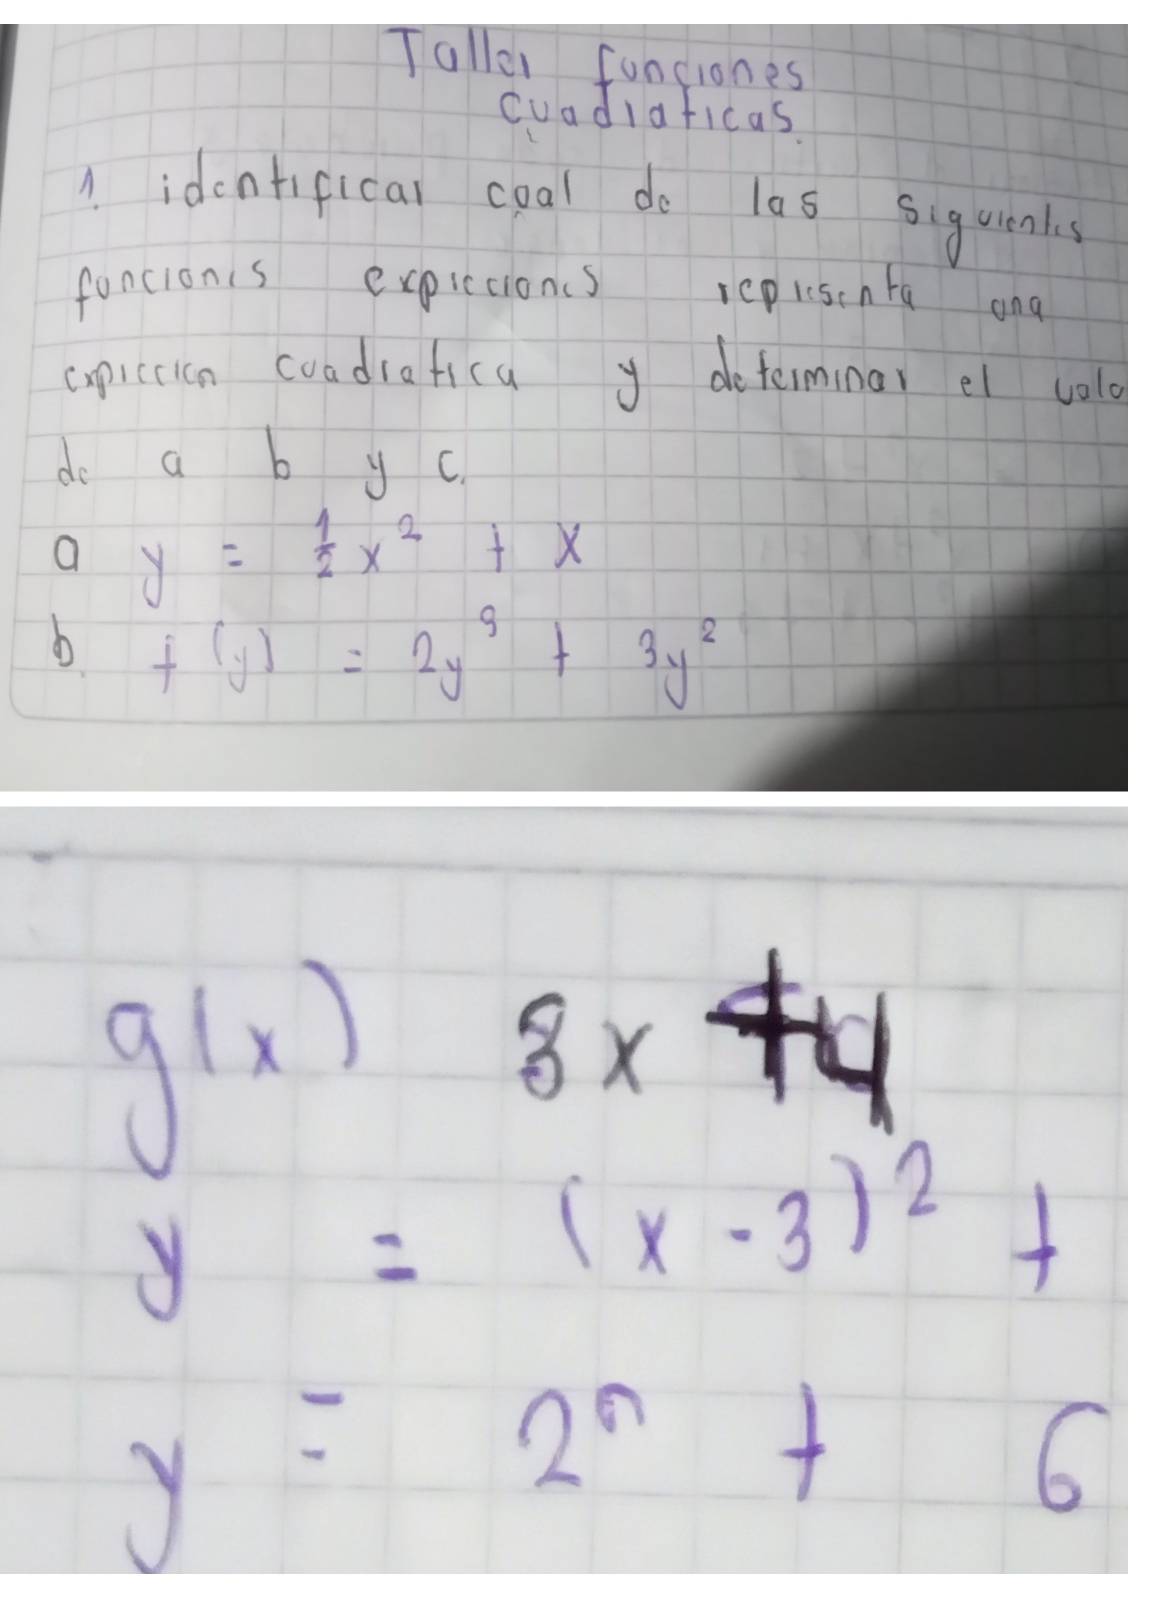 Taller funciones
cuadraticas.
1. identificar cual de las siguientes
funciones expreciones representa una
exprecion cuadratica y determinar el valo
de a b y c.
a y = 1/2 x² + x
b. f(y) = 2y³ + 3y²
g(x) 3x + 4
y = (x - 3)² +
y = 2ⁿ + 6